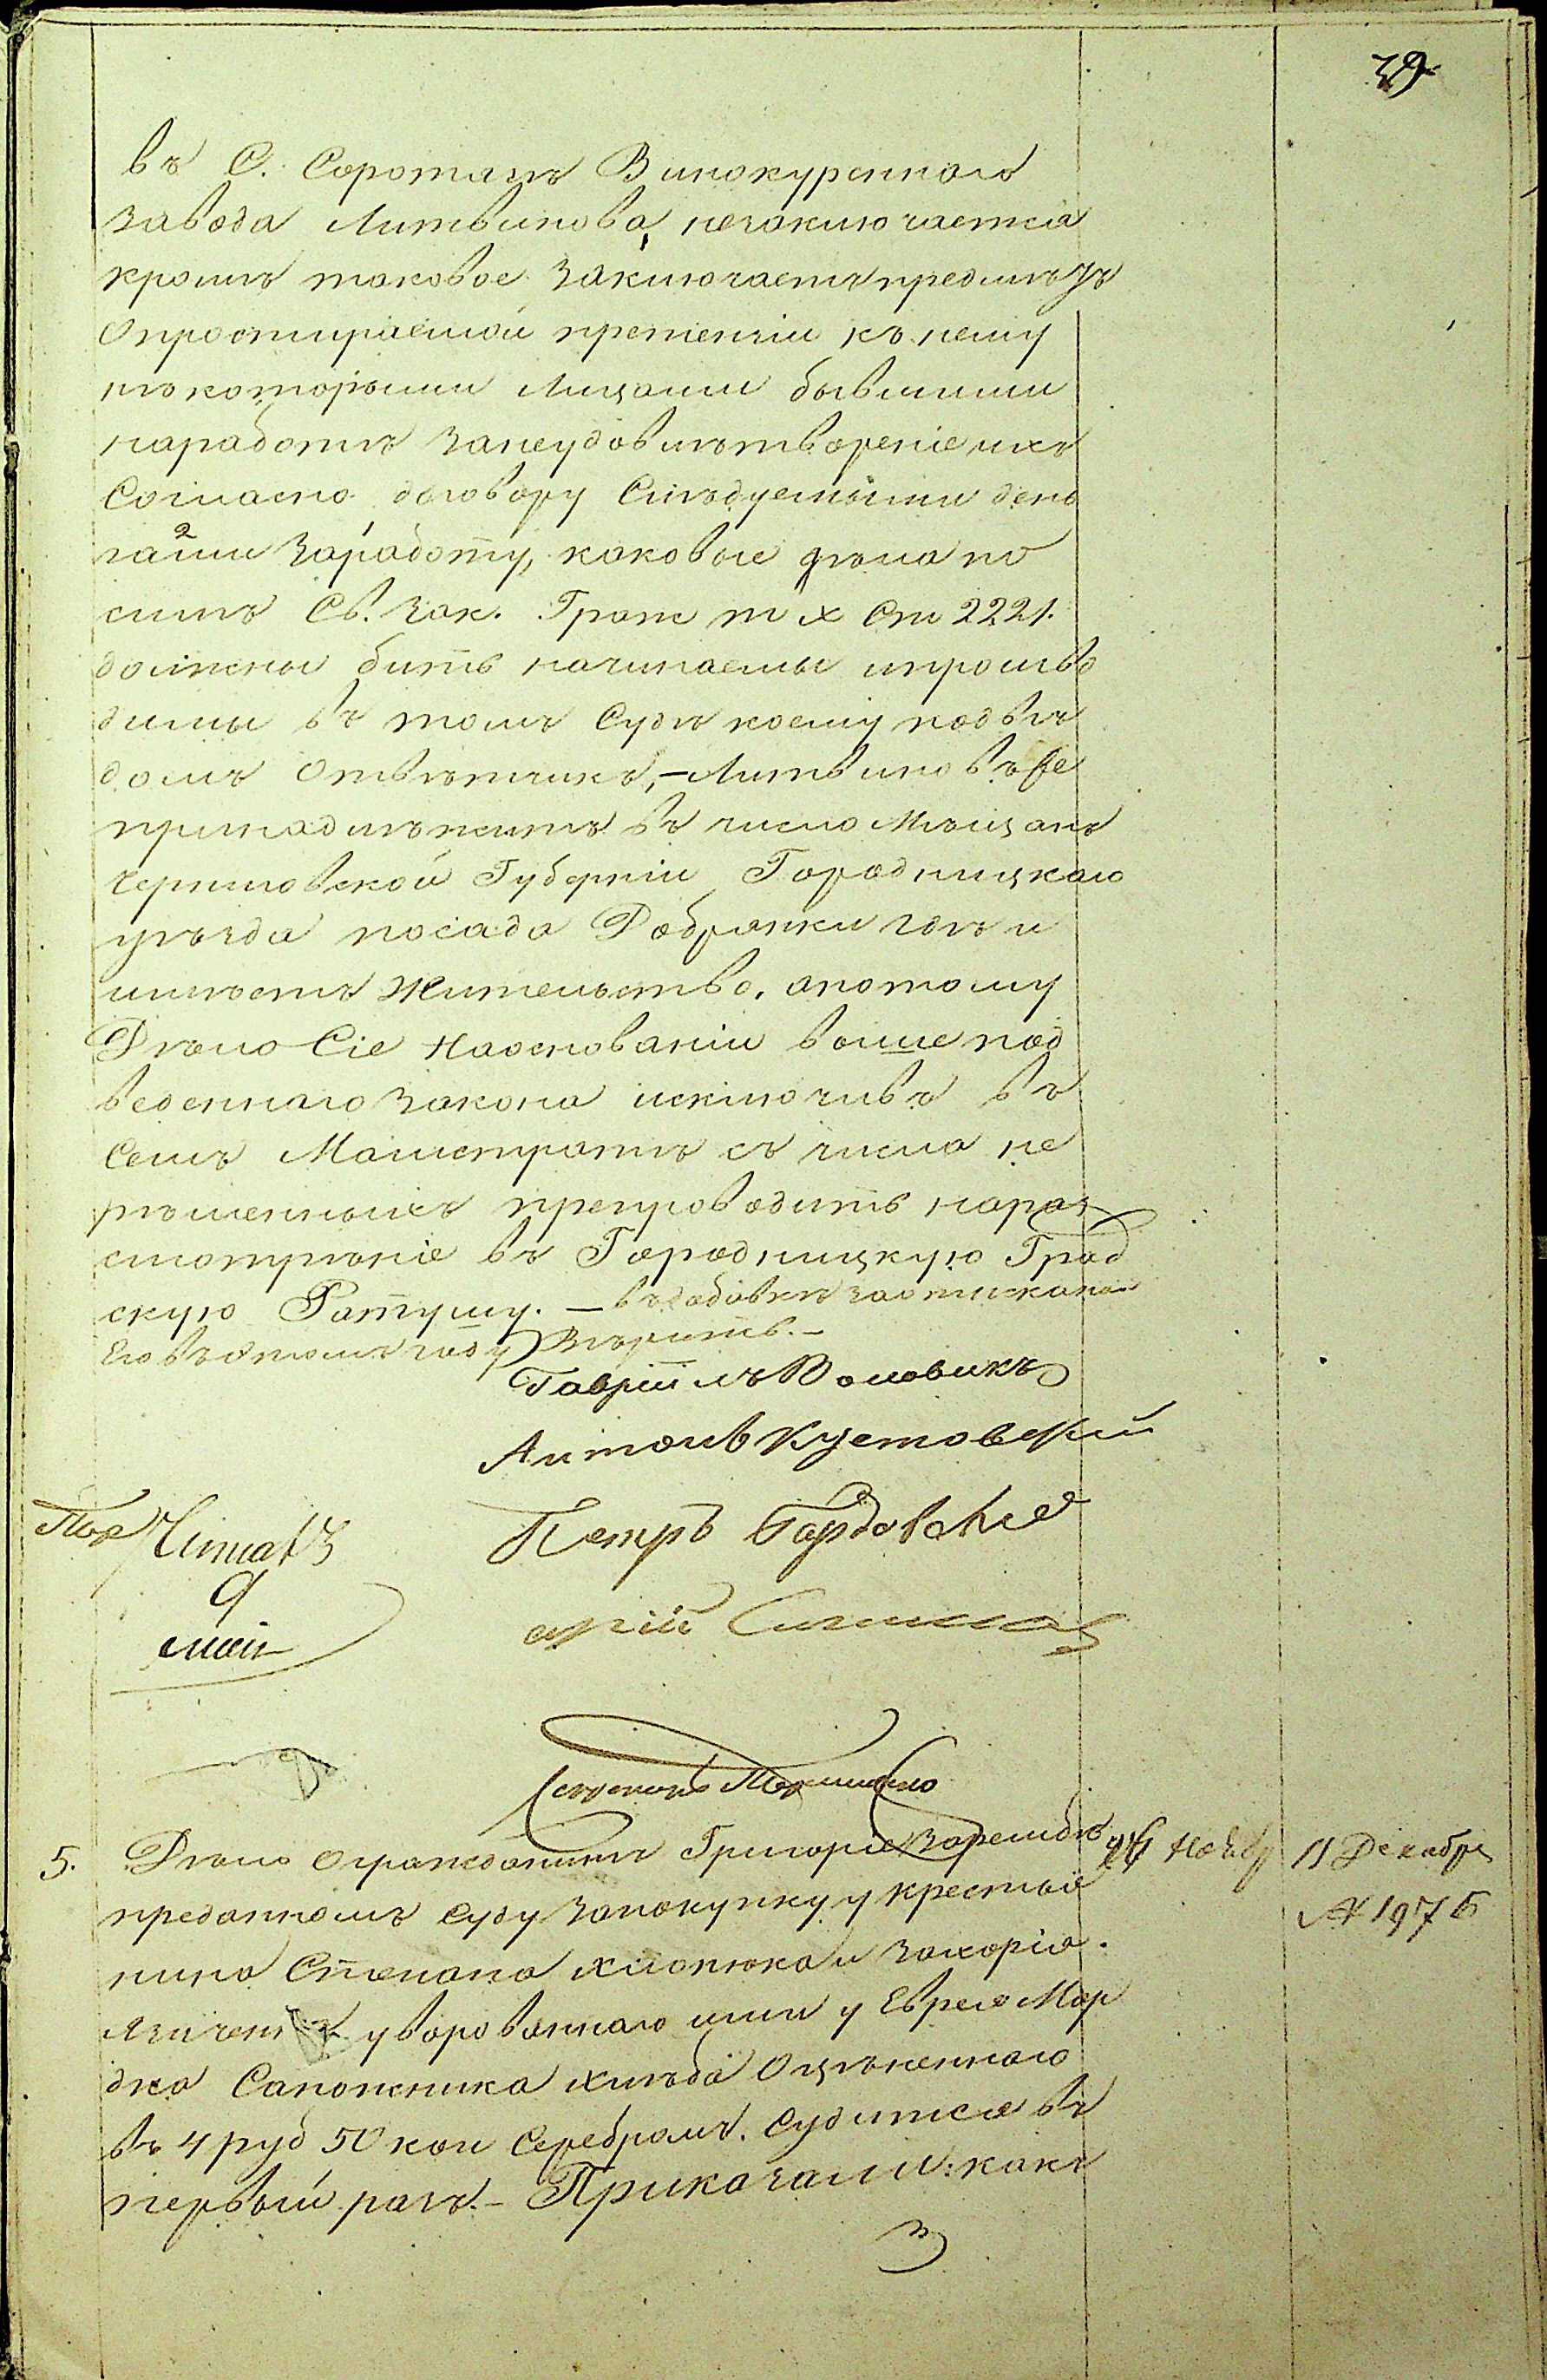 39
въ С. Соротахъ Винокуреннаго
завода Литвинова, незаключается
кромѣ таковое заключаетъ предмѣтъ
О простираемой претензіи къ нему
нѣкоторыми Лицами бывшими
наработѣ занеудовлѣтвореніе ихъ
Согласно договору Слѣдуемыми день
гами заработу, каковые дѣла по
силѣ Св. Зак. Граж т х Ст 2221.
должны бить начинаемы ипроизво
димы въ томъ Судѣ коему подвѣ
домъ отвѣтчикъ, – Литвиновъ же
принадлѣжитъ въ число Мѣщанъ
Черниговской Губерніи Городницкаго
уѣзда посада Добрянки гдѣ и
имѣетъ жительство, апотому
Дѣло Сіе Наоснованіи выше под
веденнаго закона исключивъ въ
Семъ Магистратѣ съ числа не
рѣшенныхъ препроводить нараз
смотрѣніе въ Городницкую Град
скую Ратушу. –
Его въ этомъ году Вѣрить. –
Гавріилъ Воловикъ
Антонъ Кустовскій
Петръ
9
мая
5. Дѣло огражданинѣ Григоріе Зарембѣ 26 Ноябр 11 Декабря
преданномъ Суду запокупку у крестья
№ 1975
нина Степана Хлопюка и Захорія
уворованнаго ими у Еврея Мор
дка Сапожника хлѣба Оцѣненнаго
въ 4 руб 50 коп Серебромъ. Судится въ
первый разъ. – Приказали: какъ